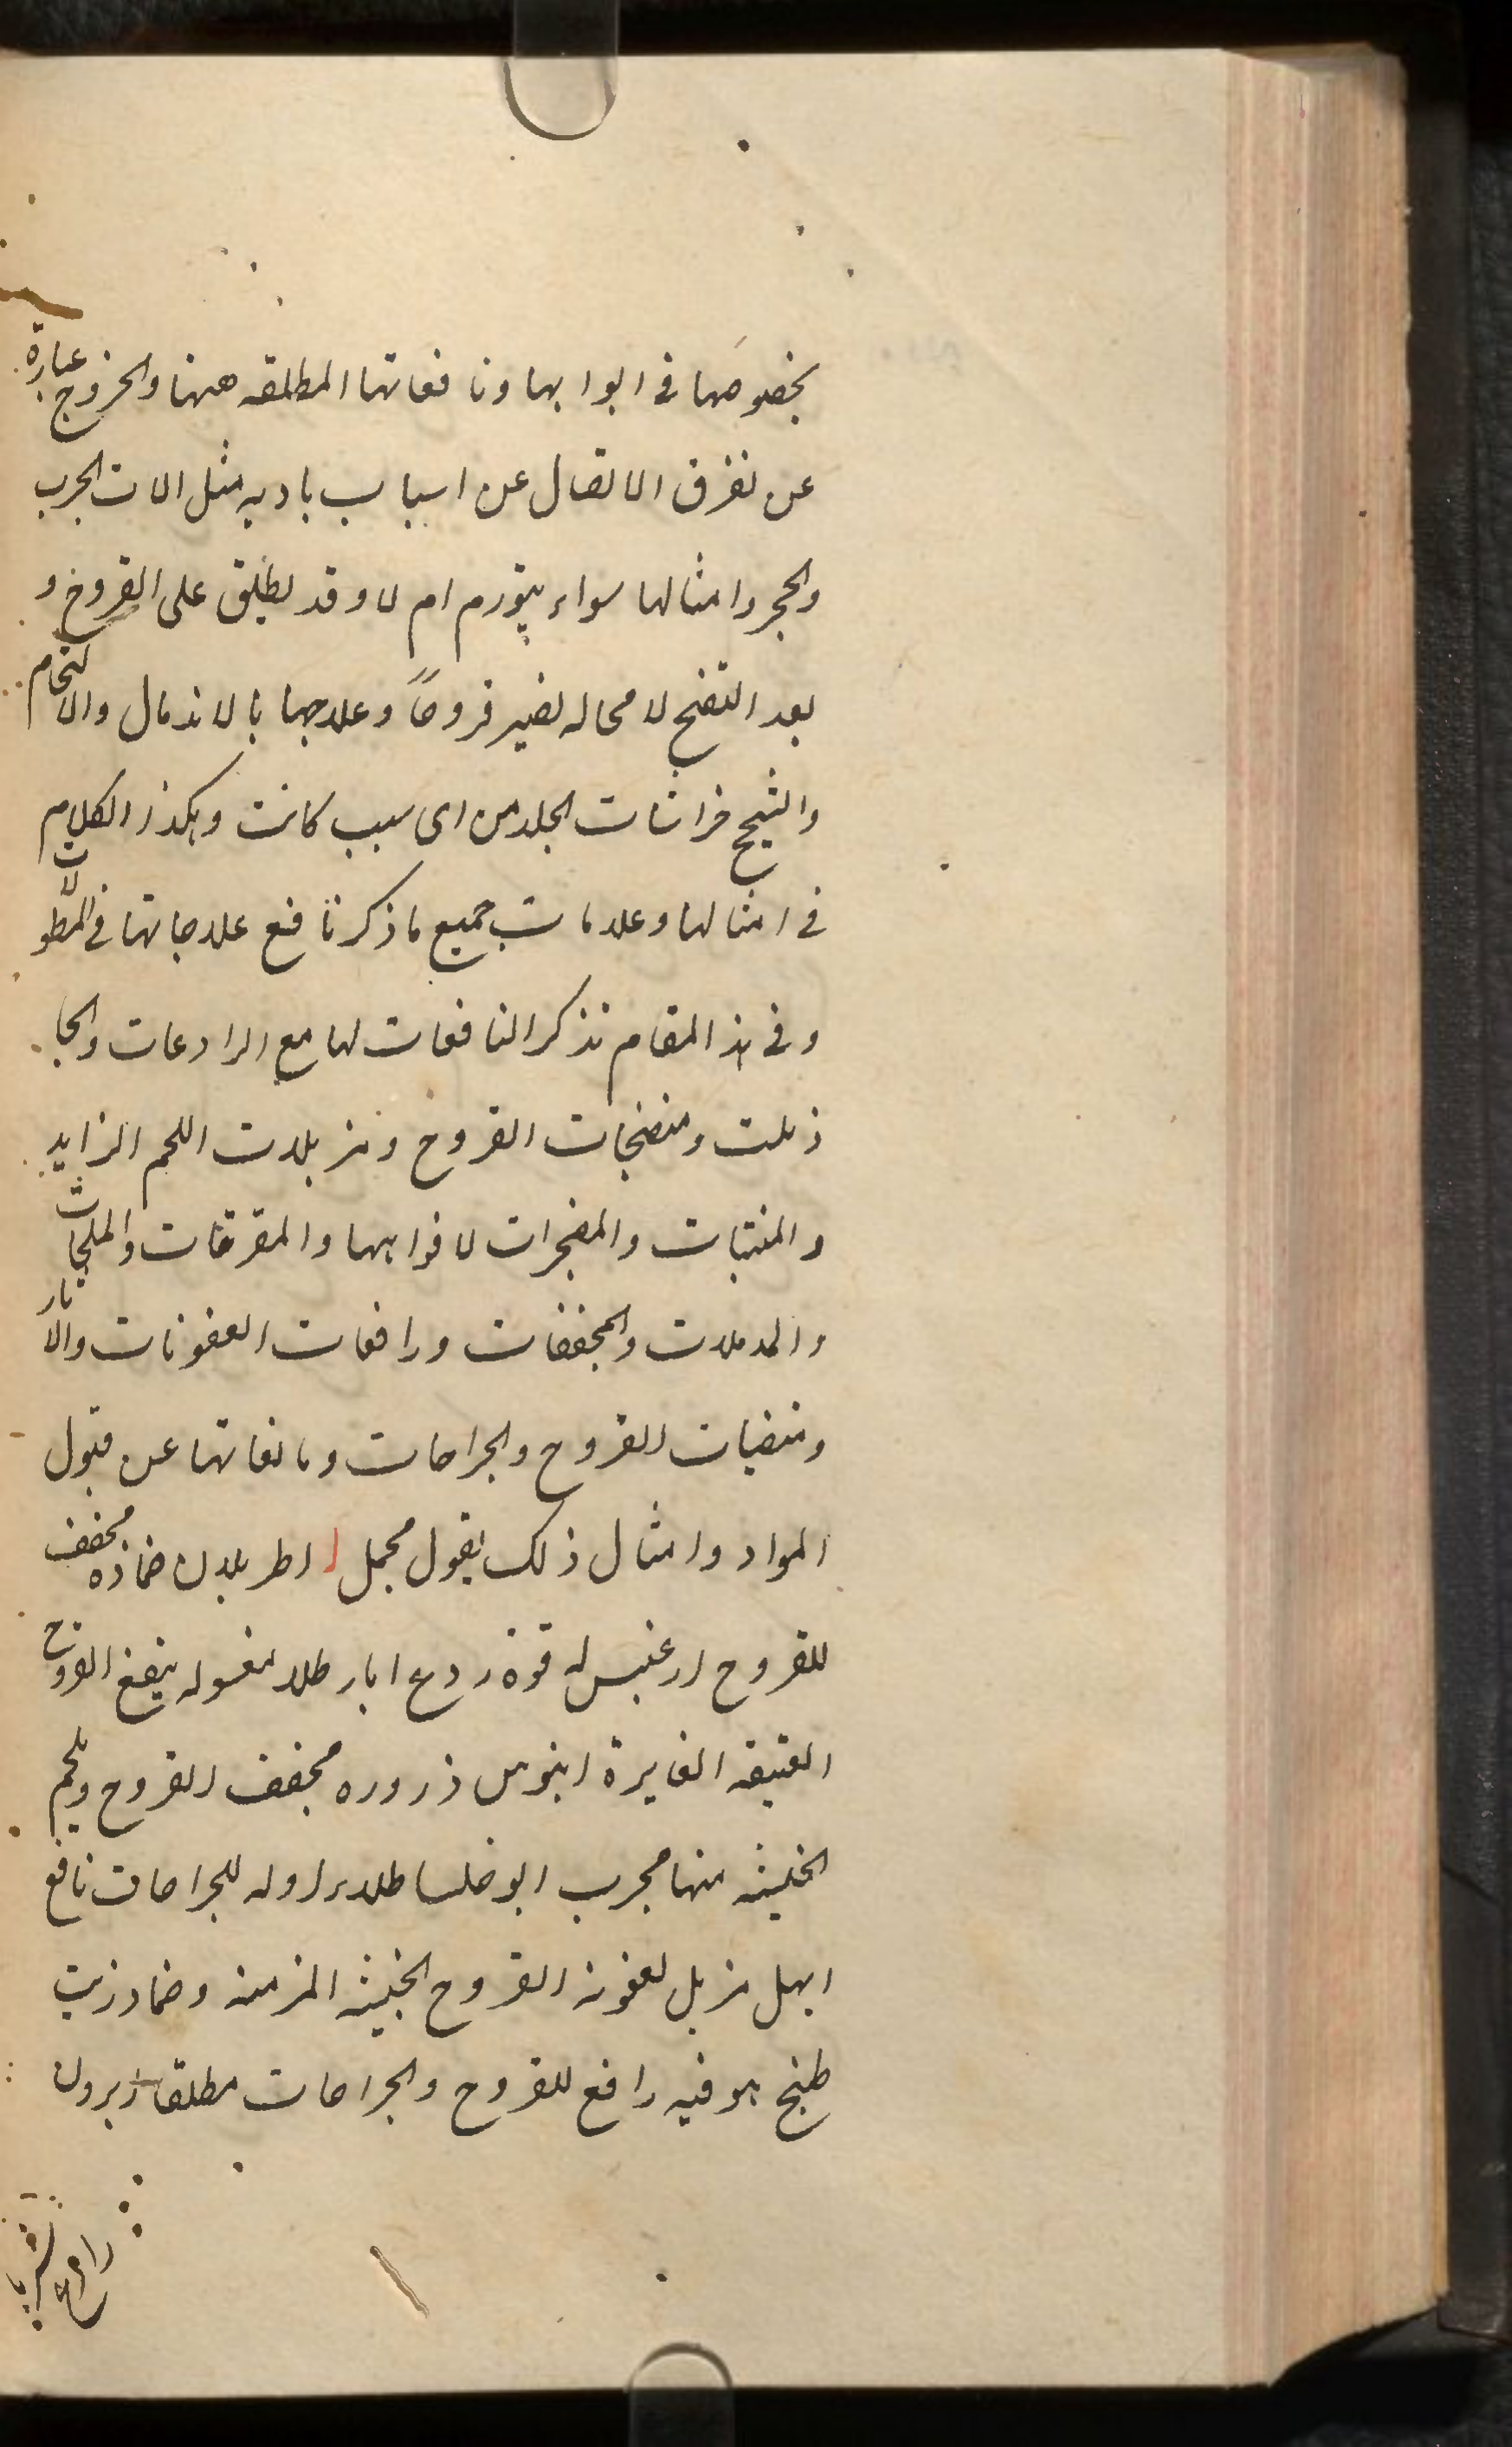 بخصوصها فى ابوابها ونافعاتها المطلقه ههنا والخروج عبارة
عن تفرق الاتصال عن اسباب باديه مثل الات الحرب
والحجر وامثالها سواء يتورم ام لا وقد يطلق على القروح و
بعد التفتح لا محاله تصير قروحاً وعلاجها بالاندمال والالتحام
والشيح خراشات الجلد من اى سبب كانت وهكذا الكلام
فى امثالها وعلامات جميع ما ذكر نافع علاجاتها فى المطولات
وفى هذا المقام نذكر النافعات لها مع الرادعات والجا
ذبات ومنضجات القروح ومزيلات اللحم الزايد
والمنبتات والمفجرات لافواهها والمقرحات والملحمات
والمدملات والمجففات ورافعات العفونات والاثار
ومنقيات القروح والجراحات ومانعاتها عن قبول
المواد وامثال ذلك بقول مجمل اطريلال ضماده مجفف
للقروح ارغيس له قوة ردع ابار طلاء مغسوله ينفع القروح
العتيقه الغايرة ابنوس ذروره مجفف القروح ويلحم
الخبيثه منها مجرب ابوخلسا طلاء للجراحات نافع
ابهل مزيل لعفونه القروح الخبيثه المزمنه وضماد زيت
طبخ هو فيه رافع للقروح والجراحات مطلقا